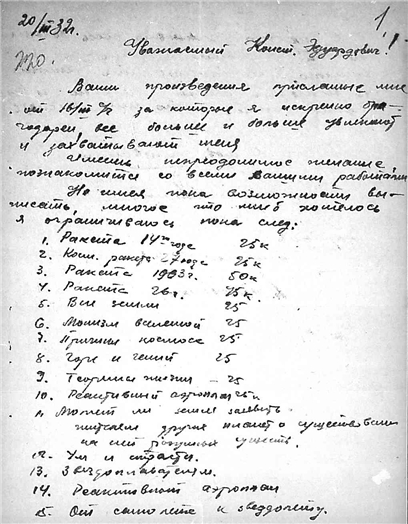 20/III 32г.
1
220.
Уважаемый Конст. Эдуардович!
Ваши произведения присланные мне
от 16/III г/г за которые я искренно бла-
годарен, все больше и больше увлекают
и захватывают меня
Имеешь непреодолимое желание
познакомится со всеми Вашими работами
Не имея пока возможности вы-
писать, многое что мне б хотелось
я ограничиваюсь пока след:
1. Ракета 14го года 25к
2. Косм. ракета 27 года 25к
3. Ракета 1903г. 50к
4. Ракета 26г. 75к.
5. Вне земли 25
6. Монизм вселенной 25
7. Причина космоса 25
8. Горе и гений 25
9. Теорима жизни — 25
10. Реактивный аэроплан 25к
11. Может ли земля заявить
жителям других планет о существовании
на ней разумных существ.
12. Ум и страсти.
13. Звездоплавателям.
14. Реактивный аэроплан
15. От самолета к звездолету.